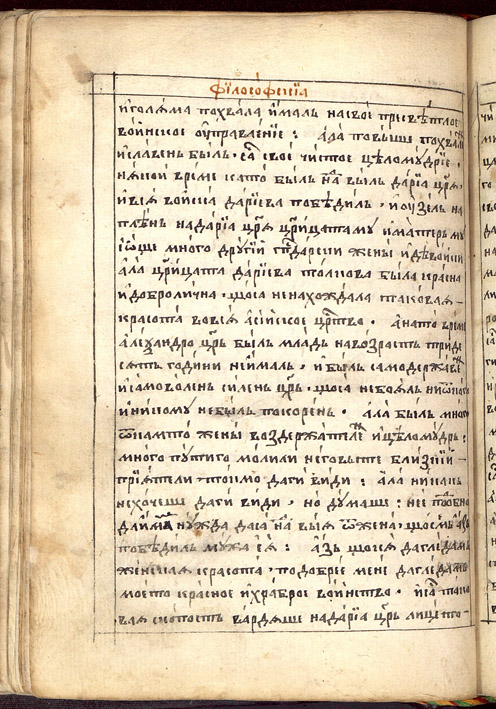 філософскїѧ
и҆голѧма похвала и҆маль насвоѐ пресвѣтлое
вои́нское оу҆правленїе : ала повыше похвале
и҆славенъ былъ · свое чистое цѣломудрїе ,
нѧкои време като былъ былъ дарїа црѧ̀ ,
и҆виѧ войска дарїева побѣдилъ , и҆оузѐлъ на
плѣнъ надарїа црѧ̀ цр҃ицата му и҆матеръ му
и҆ѡще много другїи гпⷭ҇дарски жены и҆дѣвойки
ала цр҃ицата дарїева толкова была красна
и҆добролична · щоса ненахождала таковаѧ —
красота вовсїѧ асїйское цр҃тво . а҆нато време
але́ѯандро цр҃ь былъ младъ навозрастъ триде
сѧтъ години неи҆малъ , и҆былъ самодержавен
и҆самоволенъ силенъ цр҃ь , щоса небоѧлъ ниѿкого
и҆никому небылъ покоренъ · ала былъ много
ѿкамто жены воздержателенъ и҆цѣломудръ :
много пути го молили неговыте близнїи —
прїѧтели — тоїмо даги види : ала никакъ
нехочеше даги види , но думаше : нее подобно
дайма нужда даса выѧ ѿжена , щосмъ азъ
побѣдилъ мужа еѧ : азъ щосѧ дагледамъ
женскаѧ красота , подобрее мене дагледамъ
моето красное и҆храброе воинство . тако
ваѧ скопость вардѧше надарїа цр҃ь лицето —